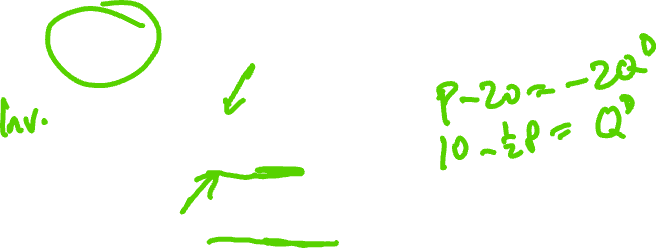 Inv.
P-20 = -2Qᴰ
10 - ½P = Qᴰ